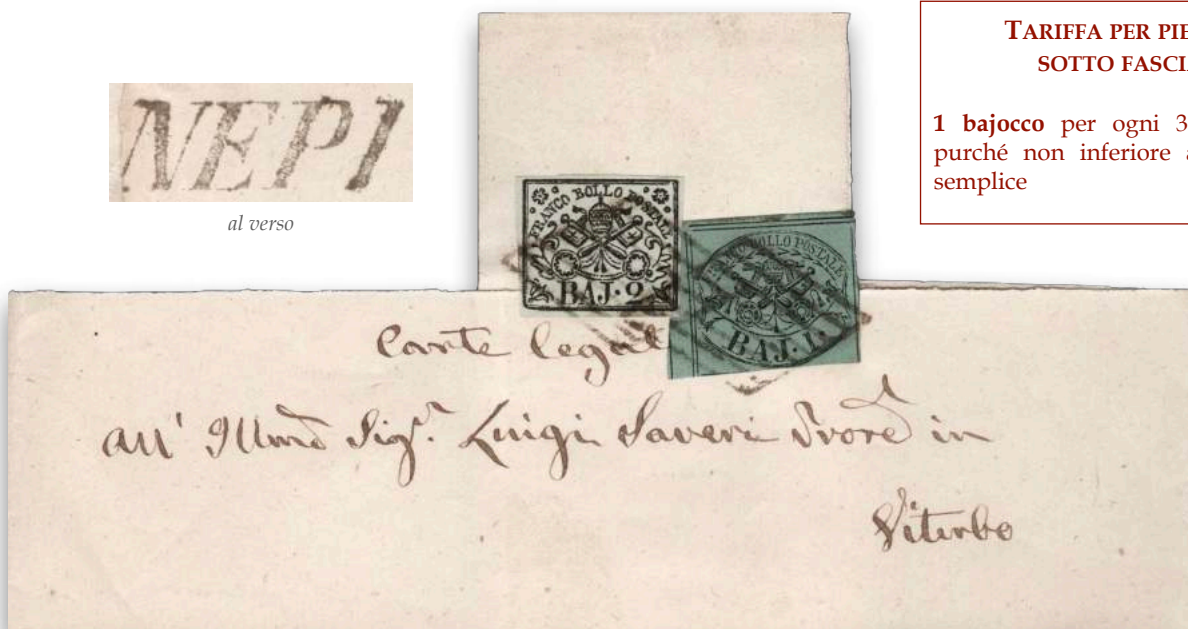 TARIFFA PER PIE
SOTTO FASCIA
1 bajocco per ogni 3
purché non inferiore a
semplice
NEPI
al verso
FRANCO BOLLO POSTALE
BAJ. 2
FRANCO BOLLO POSTALE
BAJ. 1.
Carte legali
all' Illmo Sigr. Luigi Saveri in
Viterbo